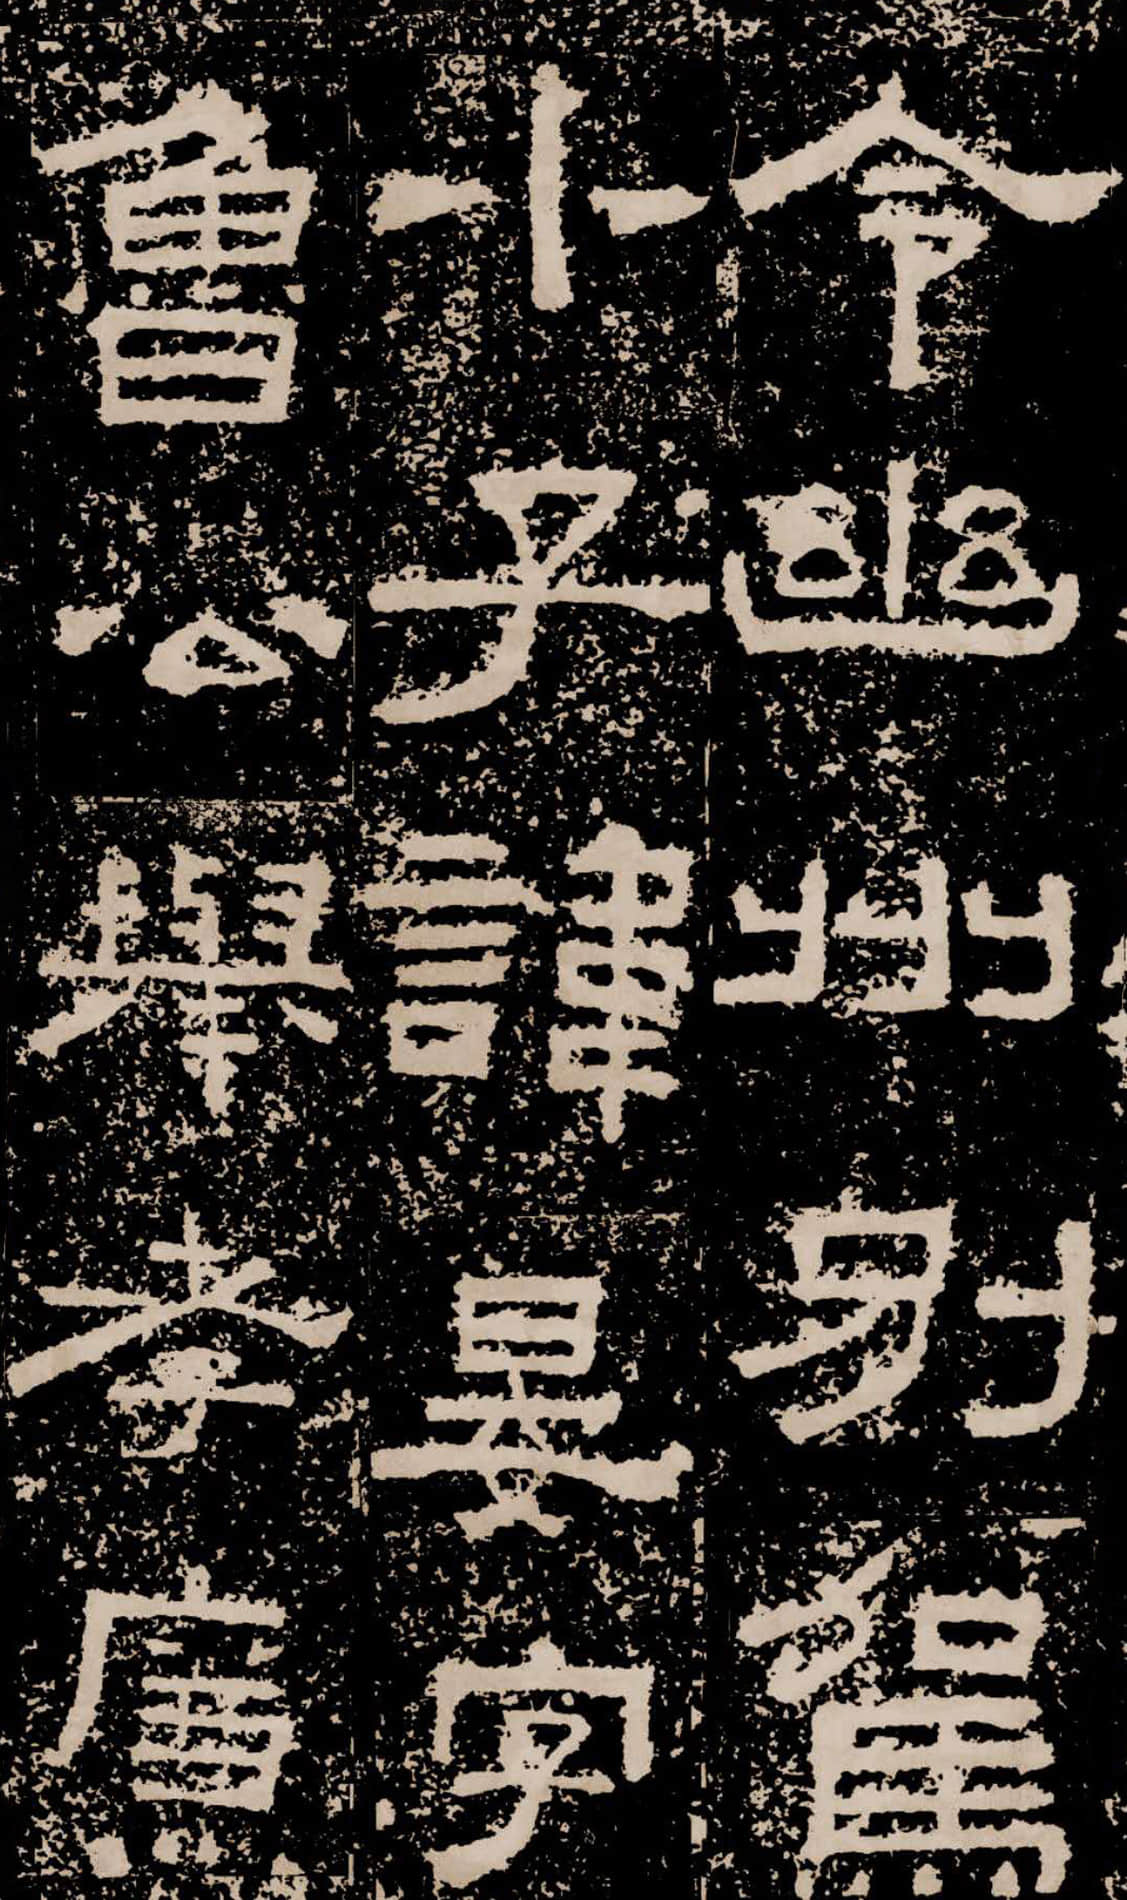 令幽州別駕
小子諱晏字
魯公舉孝廉